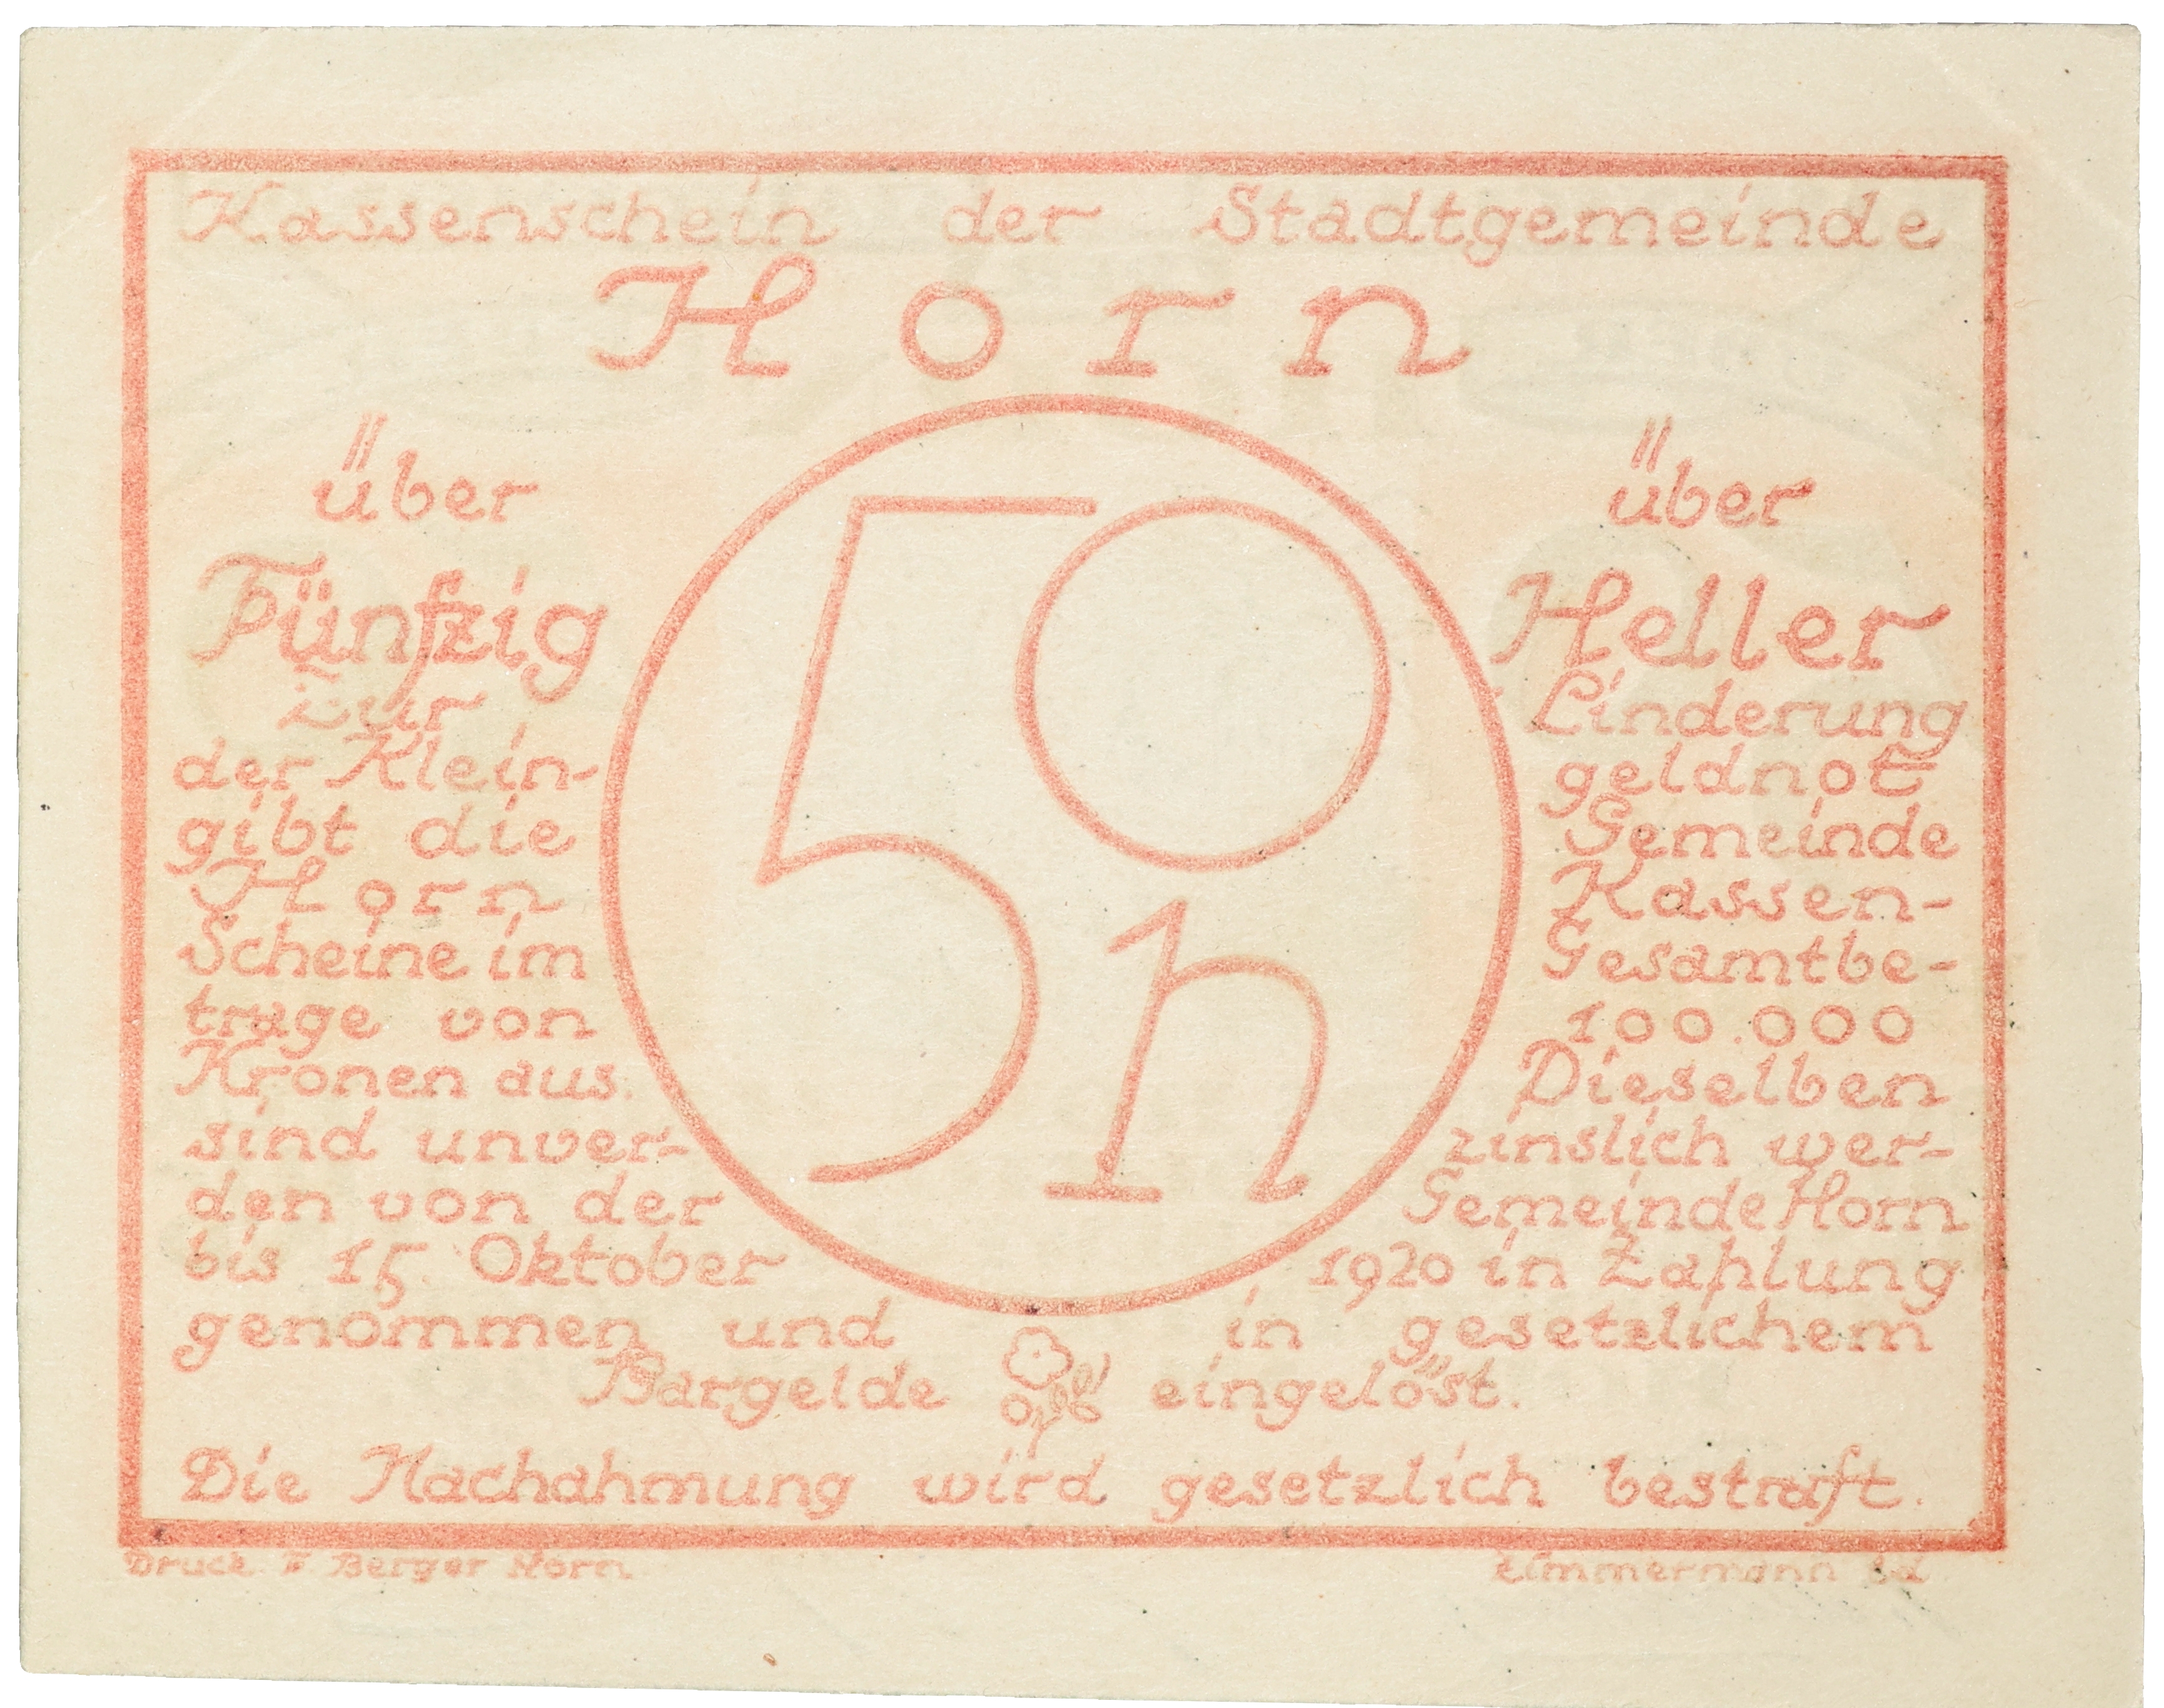 Kassenschein der Stadtgemeinde
Horn
über über
Fünfzig Heller
Zur Linderung
der Klein- geldnot
gibt die Gemeinde
Horn Kassen-
Scheine im Gesamtbe-
trage von 100.000
Kronen aus. Dieselben
sind unver- zinslich wer-
den von der Gemeinde Horn
bis 15. Oktober 1920 in Zahlung
genommen und in gesetzlichem
Bargelde eingelöst.
50
h
Die Nachahmung wird gesetzlich bestraft.
Druck F Berger Horn Zimmermann